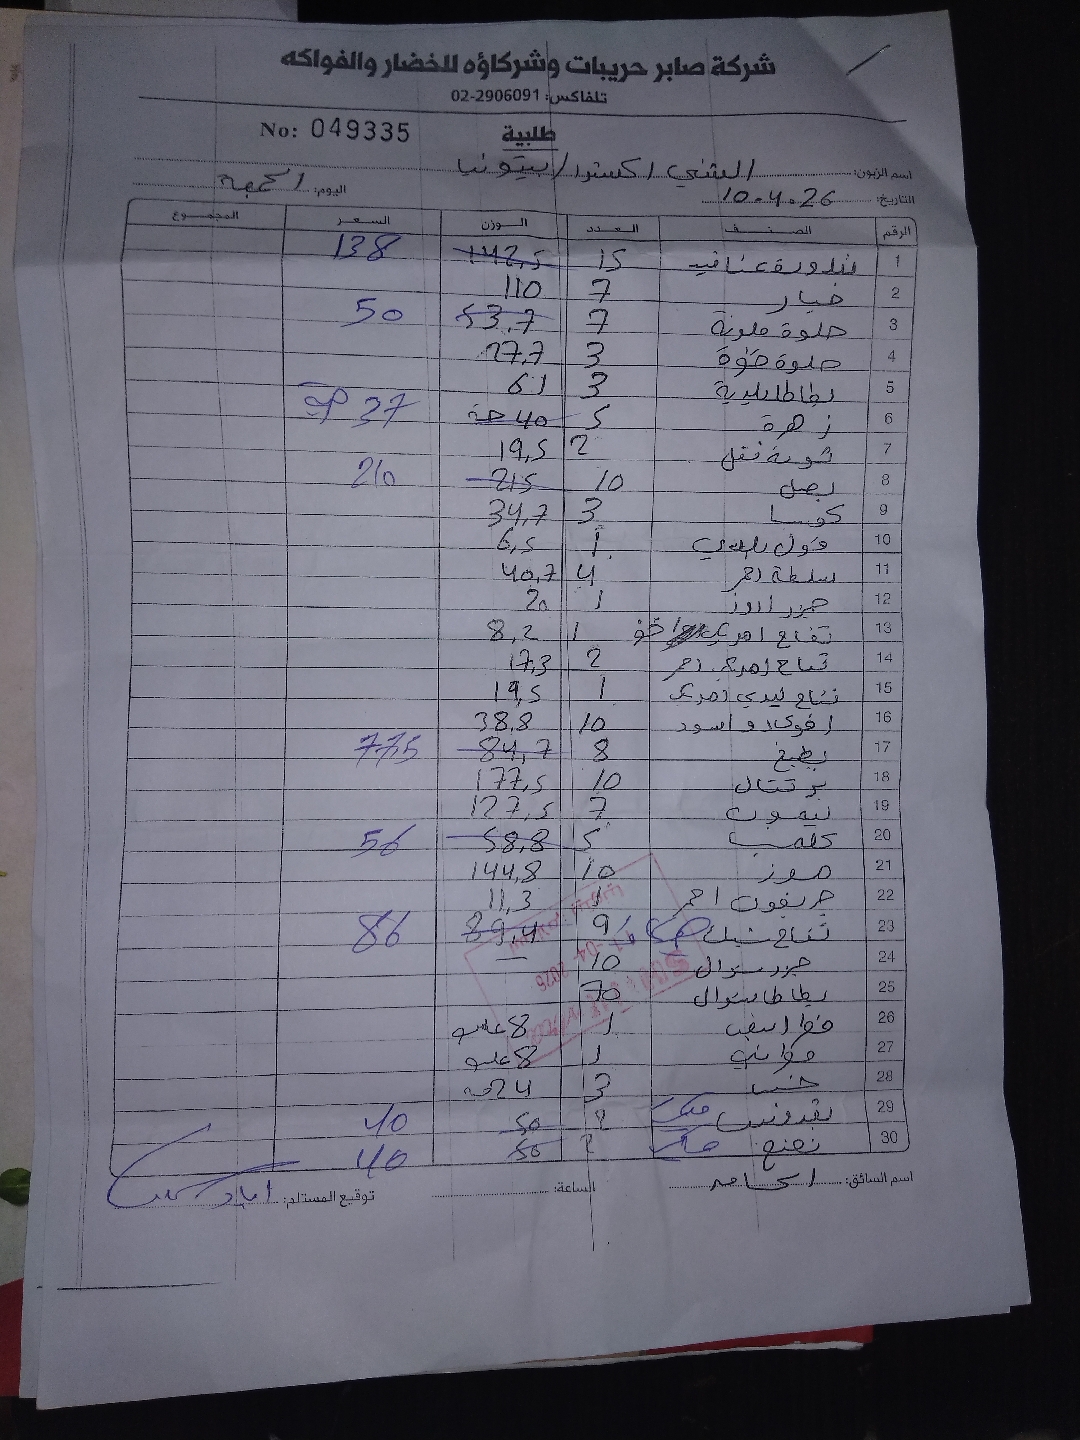 شركة صابر حريبات وشركاؤه للخضار والفواكه
تلفاكس: 02-2906091
No: 049335
طلبية
اسم الزبون: الشني اكسترا / بيتونيا
التاريخ: 10.4.26 اليوم: الجمعة
الرقم الصنف العدد الوزن السعر المجموع
1 بندورة عناقيد 15 142,5 138
2 خيار 7 110
3 حلوة ملونة 7 53,7 50
4 حلوة 3 27,7
5 بطاطا بلدية 3 61
6 زهرة 5 40 حبة 37
7 2 19,5
8 بصل 10 215 210
9 كوسا 3 34,7
10 فول 1 6,5
11 سلطة احمر 4 40,7
12 جزر 1 20
13 تفاح 1 8,2
14 تفاح احمر 2 17,3
15 تفاح ليدي 1 19,5
16 افوكادو اسود 10 38,8
17 بطيخ 8 84,7 77,5
18 برتقال 10 177,5
19 ليمون 7 127,5
20 5 58,8 56
21 موز 10 144,8
22 احمر 1 11,3
23 تفاح 9 89,4 86
24 جزر 10 —
25 بطاطا 70
26 1 8
27 1 8
28 خس 3 24
29 بقدونس 2 50 40
30 نعنع 2 50 40
اسم السائق: الساعة: توقيع المستلم: